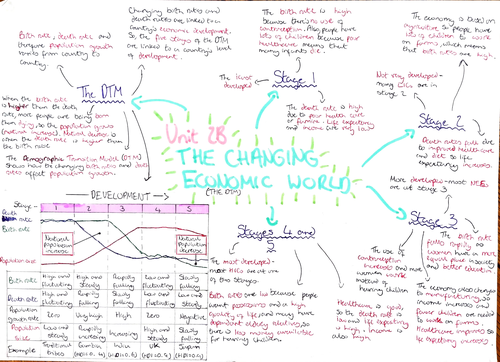 Unit 2B
THE CHANGING
ECONOMIC WORLD
(THE DTM)
The DTM
Birth rate, death rate and
therefore population growth
varies from country to
country
Changing birth rates and
death rates are linked to a
country's economic development.
So, the five stages of the DTM
are linked to a country's level
of development.
When the birth rate
is higher than the death
rate, more people are being born
than dying, so the population grows
(natural increase). Natural decrease is
when the death rate is higher than
the birth rate
The Demographic Transition Model (DTM)
shows how the changing birth rates and death
rates affect population growth.
Stage 1
The birth rate is high
because there's no use of
contraception. Also people have
lots of children because poor
healthcare means that many
infants die.
The least
developed
The death rate is high
due to poor health care
or famine. Life expectancy
and income are very low
Stage 2
The economy is based on
agriculture so people have
lots of children to work
on farms, which means
that birth rates are high.
Not very developed -
many LICs are in
stage 2
Death rates fall due
to improved health care
and diet so life
expectancy increases
Stage 3
More developed - most NEEs
are at stage 3
The birth rate
falls rapidly as
women have a more
equal place in society
and better education
The use of
contraception
increases and more
women work
instead of having
children
The economy also changes
to manufacturing, so
income increases and
fewer children are needed
to work on farms.
Healthcare improves so
life expectancy increases
Stages 4 and
5
The most developed -
most HICs are at one
of these stages
Birth rates are low because people
want possessions and a high
quality of life, and may have
dependent elderly relatives, so
there is less money available
for having children
Healthcare is
good, so the death rate
is low and life expectancy
is high. Income is
also high
DEVELOPMENT
Stage 1 2 3 4 5
Death rate
Birth rate
Natural
population
increase
Natural
population
decrease
Population size
Birth rate High and fluctuating High and steady Rapidly falling Low and fluctuating Slowly falling
Death rate High and fluctuating Rapidly falling Slowly falling Low and fluctuating Low and steady
Population growth rate Zero Very high High Zero Negative
Population size Low and steady Rapidly increasing Increasing High and steady Slowly falling
Example